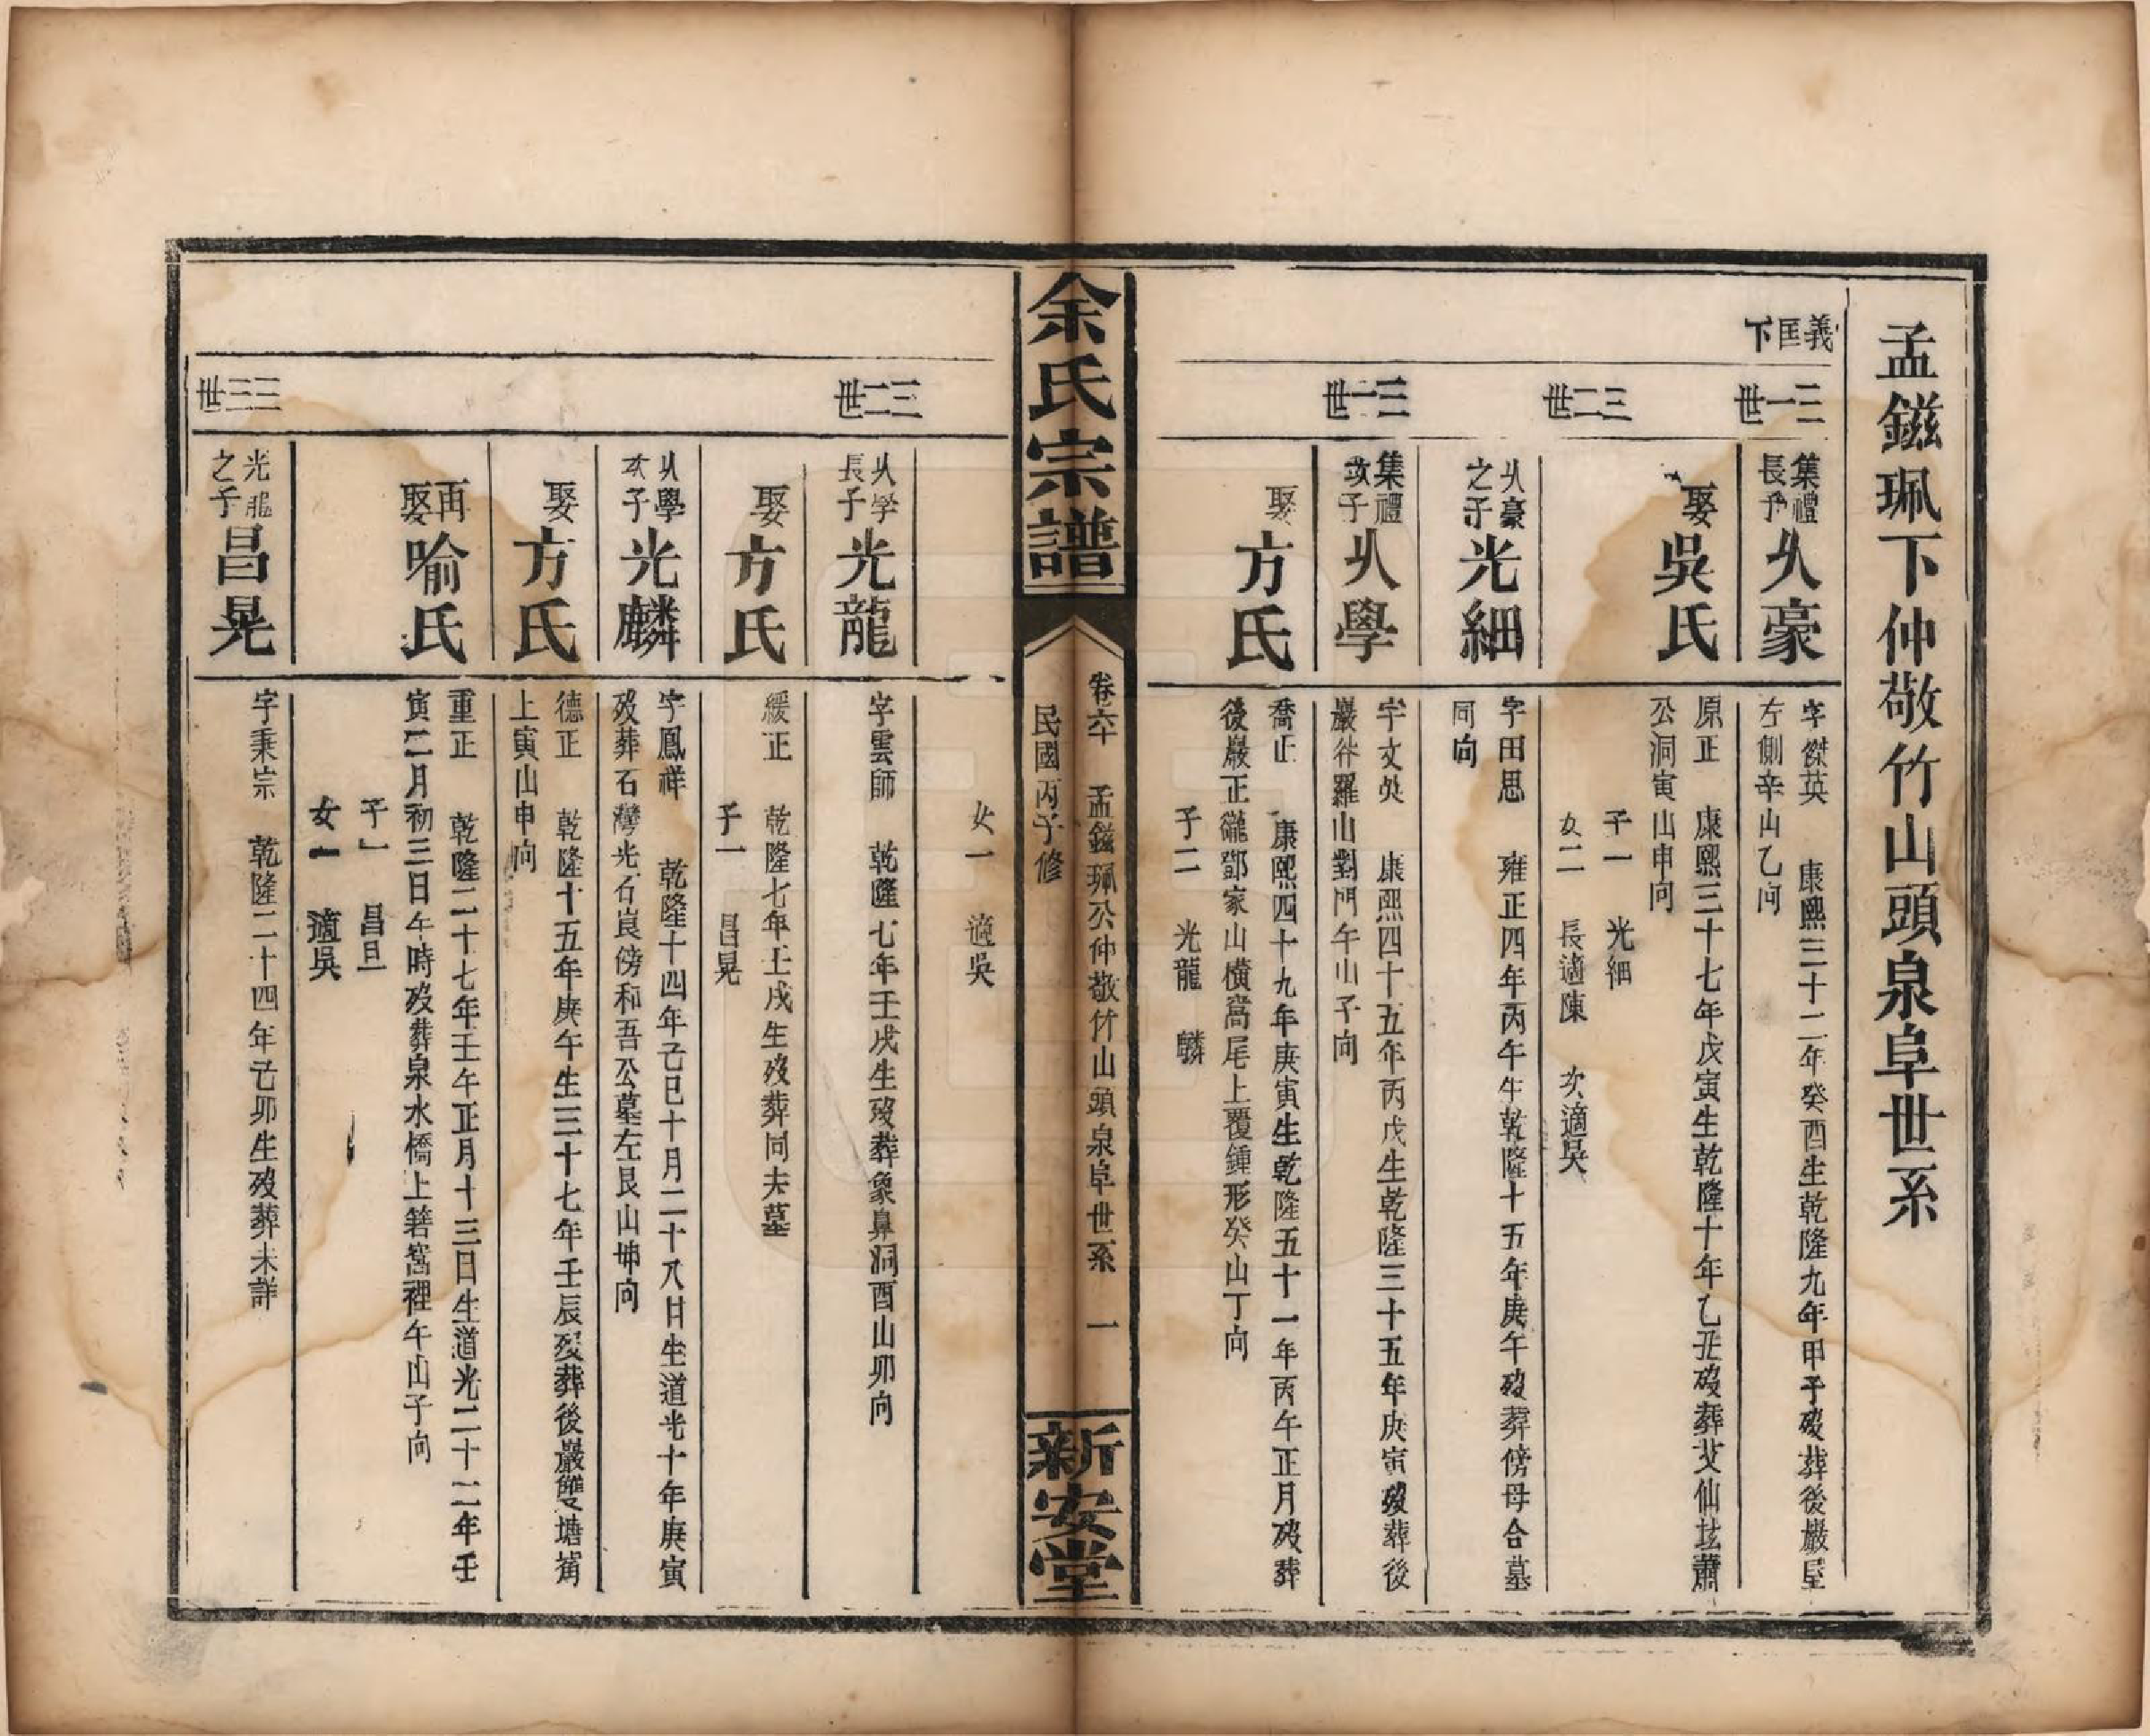 孟鎡珮下仲敬竹山頭泉阜世系
義匡下
三一世
集禮長子 从豪
字傑英 康熙三十二年癸酉生乾隆九年甲子歿葬後巖屋
左側辛山乙向
娶吳氏
原正 康熙三十七年戊寅生乾隆十年乙丑歿葬艾仙坳蕭
公洞寅山申向
子一 光細
女二 長適陳 次適吳
三二世
从豪之子 光細
字田思 雍正四年丙午生乾隆十五年庚午歿葬傍母合墓
同向
三一世
集禮次子 从學
字文奐 康熙四十五年丙戌生乾隆三十五年庚寅歿葬後
巖祚羅山對門午山子向
娶方氏
喬正 康熙四十九年庚寅生乾隆五十一年丙午正月歿葬
後巖正衖鄧家山橫窩尾上覆鍾形癸山丁向
子二 光龍 麟
余氏宗譜
卷六十 孟鎡珮公仲敬竹山頭泉阜世系 一
民國丙子修
新安堂
女一 適吳
三二世
从學長子 光龍
字雲師 乾隆七年壬戌生歿葬象鼻洞酉山卯向
娶方氏
緩正 乾隆七年壬戌生歿葬同夫墓
子一 昌晃
从學次子 光麟
字鳳祥 乾隆十四年己巳十月二十八日生道光十年庚寅
歿葬石灣光石崀傍和吾公墓左艮山坤向
娶方氏
德正 乾隆十五年庚午生三十七年壬辰歿葬後巖雙塘角
上寅山申向
再娶喻氏
重正 乾隆二十七年壬午正月十三日生道光二十二年壬
寅二月初三日午時歿葬泉水橋上箬窩裡午山子向
子一 昌旦
女一 適吳
三三世
光龍之子 昌晃
字秉宗 乾隆二十四年己卯生歿葬未詳